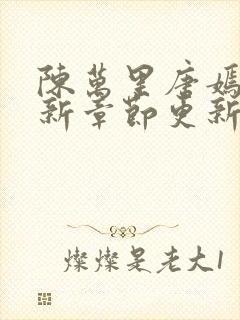 陳萬里唐嫣
新章節更新
燦燦是老大1